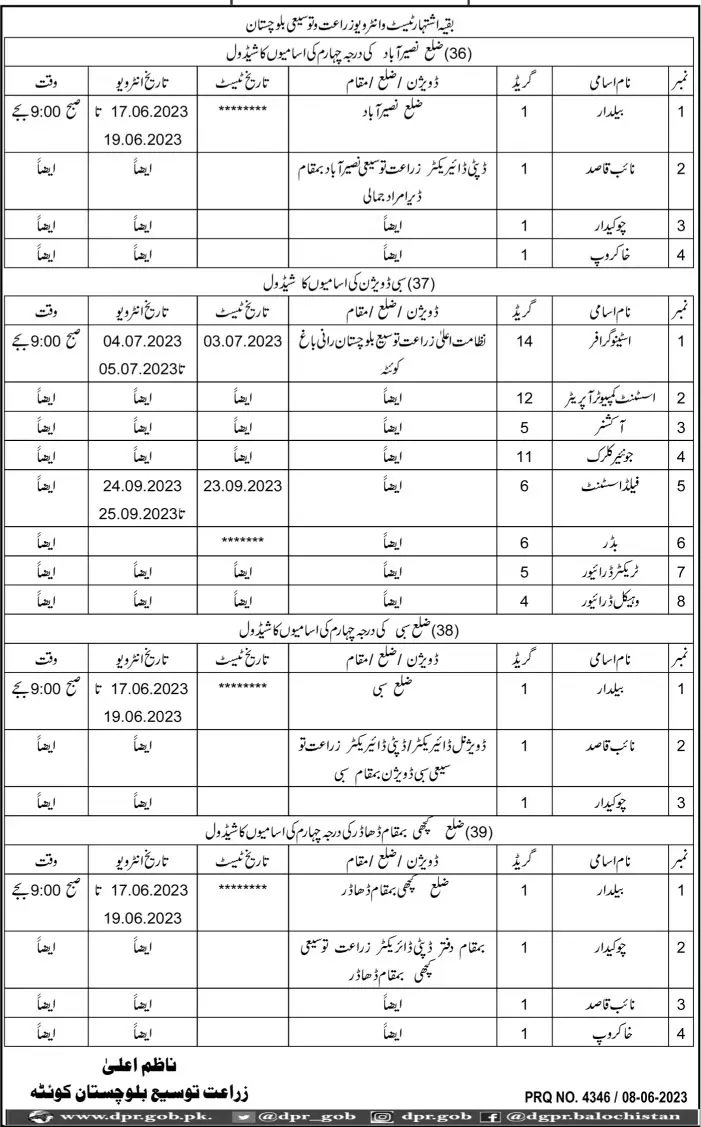 بقیہ اشتہار ٹیسٹ وانٹرویو زراعت و توسیعی بلوچستان
(36) ضلع نصیرآباد کی درجہ چہارم کی اسامیوں کا شیڈول
نمبر نام اسامی گریڈ ڈویژن /ضلع /مقام تاریخ ٹیسٹ تاریخ انٹرویو وقت
1 بیلدار 1 ضلع نصیرآباد ******** 17.06.2023 تا صبح 9:00 بجے
19.06.2023
2 نائب قاصد 1 ڈپٹی ڈائیریکٹر زراعت توسیعی نصیرآباد بمقام ایضاً ایضاً
ڈیرامراد جمالی
3 چوکیدار 1 ایضاً ایضاً ایضاً
4 خاکروپ 1 ایضاً ایضاً ایضاً
(37) سبی ڈویژن کی اسامیوں کا شیڈول
نمبر نام اسامی گریڈ ڈویژن /ضلع /مقام تاریخ ٹیسٹ تاریخ انٹرویو وقت
1 اسٹینوگرافر 14 نظامت اعلیٰ زراعت توسیع بلوچستان رانی باغ 03.07.2023 04.07.2023 صبح 9:00 بجے
کوئٹہ تا05.07.2023
2 اسسٹنٹ کمپیوٹر آپریٹر 12 ایضاً ایضاً ایضاً ایضاً
3 آکشنر 5 ایضاً ایضاً ایضاً ایضاً
4 جونئیر کلرک 11 ایضاً ایضاً ایضاً ایضاً
5 فیلڈ اسسٹنٹ 6 ایضاً 23.09.2023 24.09.2023 ایضاً
تا25.09.2023
6 بڈر 6 ایضاً ******* ایضاً
7 ٹریکٹر ڈرائیور 5 ایضاً ایضاً ایضاً ایضاً
8 وہیکل ڈرائیور 4 ایضاً ایضاً ایضاً ایضاً
(38) ضلع سبی کی درجہ چہارم کی اسامیوں کا شیڈول
نمبر نام اسامی گریڈ ڈویژن /ضلع /مقام تاریخ ٹیسٹ تاریخ انٹرویو وقت
1 بیلدار 1 ضلع سبی ******** 17.06.2023 تا صبح 9:00 بجے
19.06.2023
2 نائب قاصد 1 ڈویژنل ڈائیریکٹر/ڈپٹی ڈائیریکٹر زراعت تو ایضاً ایضاً
سیعی سبی ڈویژن بمقام سبی
3 چوکیدار 1 ایضاً ایضاً
(39) ضلع کچھی بمقام ڈھاڈر کی درجہ چہارم کی اسامیوں کا شیڈول
نمبر نام اسامی گریڈ ڈویژن /ضلع /مقام تاریخ ٹیسٹ تاریخ انٹرویو وقت
1 بیلدار 1 ضلع کچھی بمقام ڈھاڈر ******** 17.06.2023 تا صبح 9:00 بجے
19.06.2023
2 چوکیدار 1 بمقام دفتر ڈپٹی ڈائریکٹر زراعت توسیعی ایضاً ایضاً
کچھی بمقام ڈھاڈر
3 نائب قاصد 1 ایضاً ایضاً ایضاً
4 خاکروپ 1 ایضاً ایضاً ایضاً
ناظم اعلیٰ
زراعت توسیع بلوچستان کوئٹہ
PRQ NO. 4346 / 08-06-2023
www.dpr.gob.pk. @dpr_gob dpr.gob @dgpr.balochistan